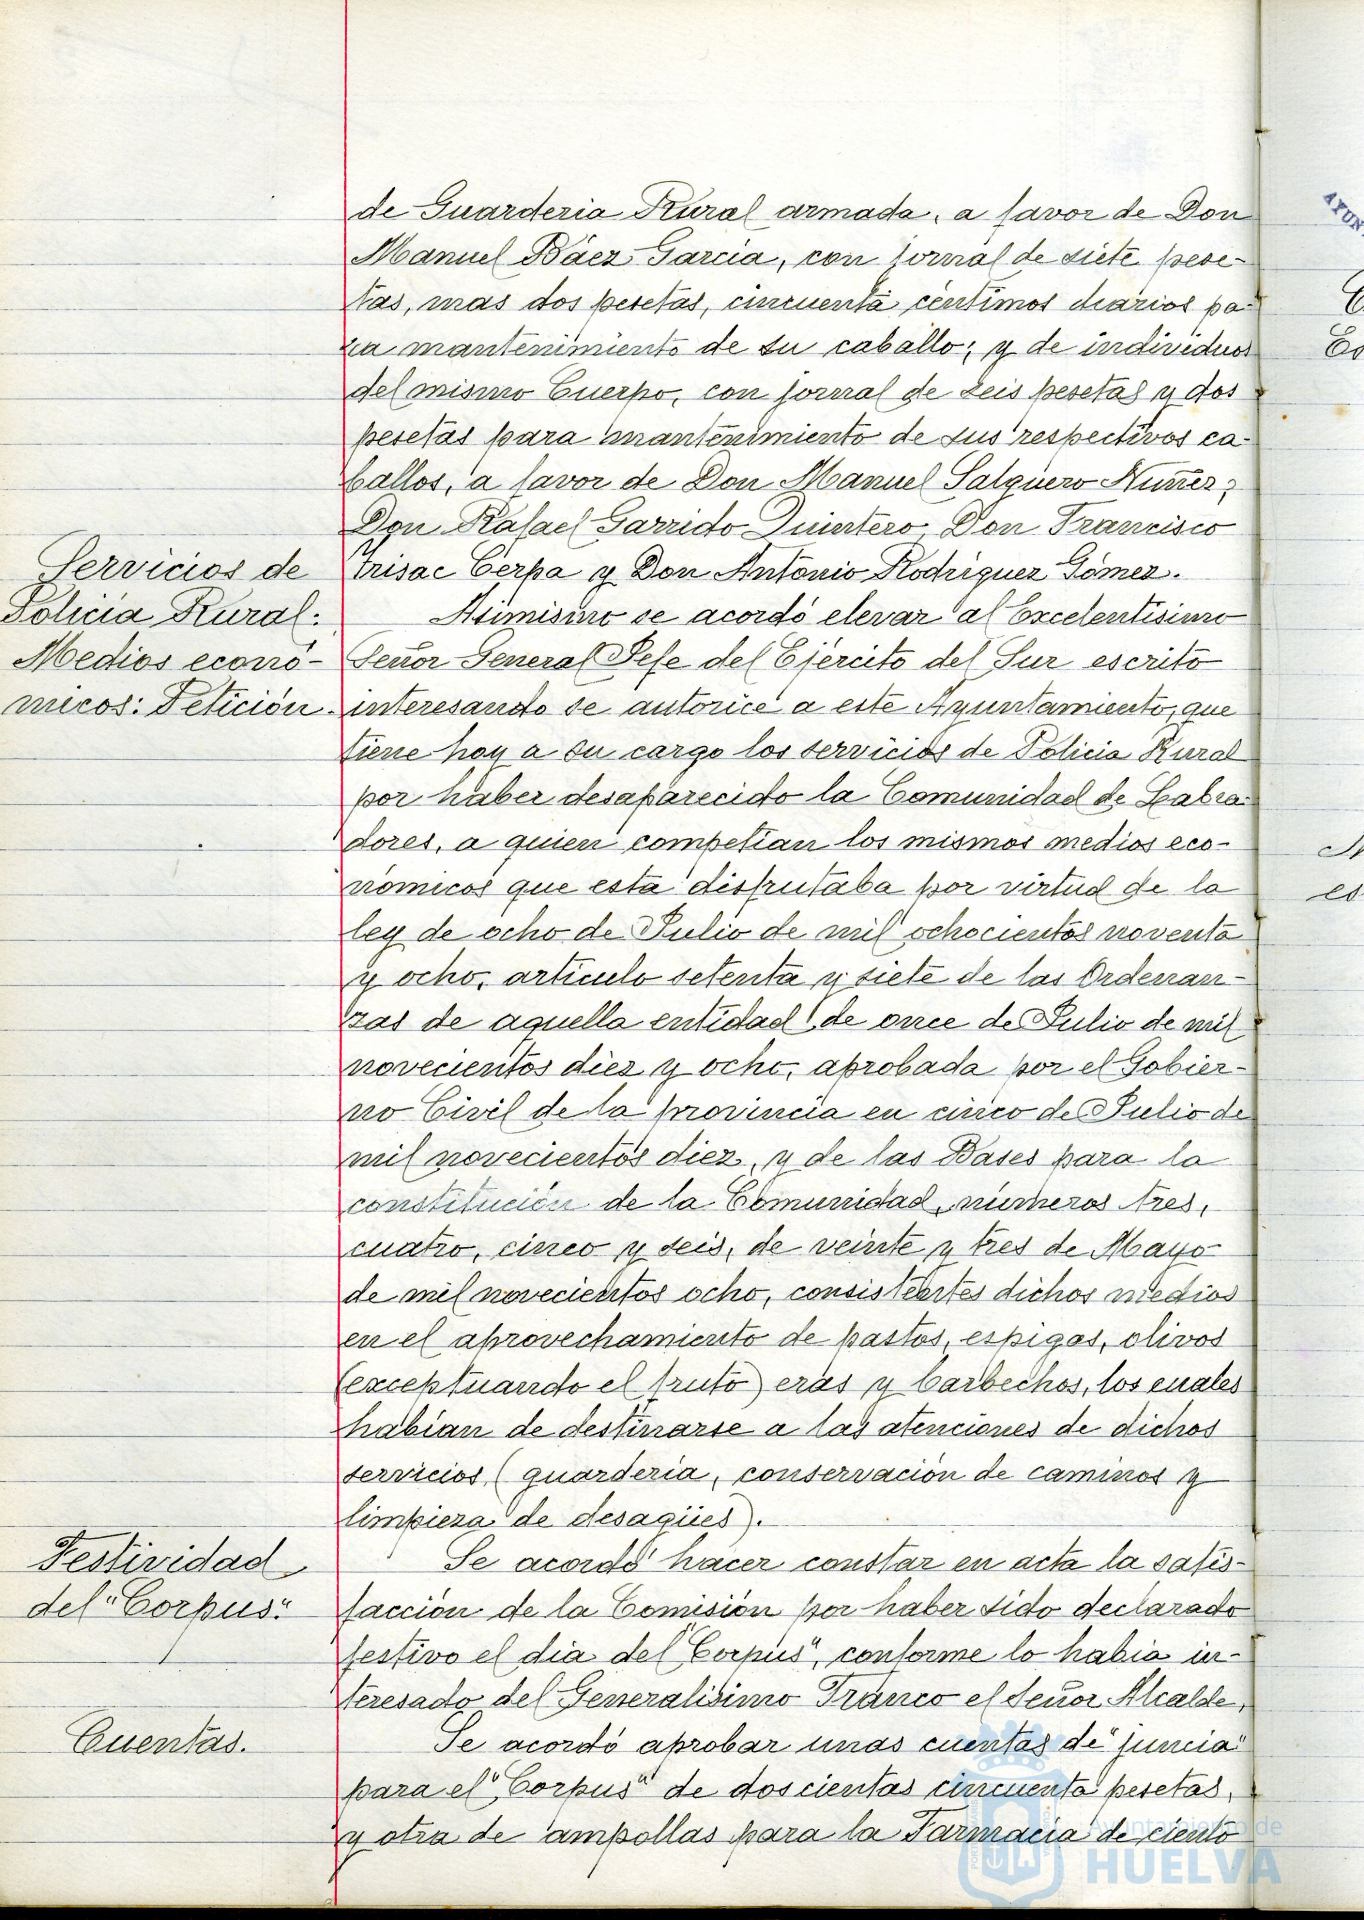 de Guarderia Rural armada, a favor de Don
Manuel Báez Garcia, con jornal de siete pese-
tas, mas dos pesetas, cincuenta céntimos diarios pa-
ra mantenimiento de su caballo; y de individuos
del mismo Cuerpo, con jornal de seis pesetas y dos
pesetas para mantenimiento de sus respectivos ca-
ballos, a favor de Don Manuel Salguero Nuñez;
Don Rafael Garrido Quintero, Don Francisco
Cerpa y Don Antonio Rodriguez Gómez.
Servicios de
Policia Rural:
Medios econó-
micos: Petición.
Asimismo se acordó elevar al Excelentisimo
Señor General Jefe del Ejército del Sur escrito
interesando se autorice a este Ayuntamiento, que
tiene hoy a su cargo los servicios de Policia Rural
por haber desaparecido la Comunidad de Labra-
dores, a quien competian los mismos medios eco-
nómicos que esta disfrutaba por virtud de la
ley de ocho de Julio de mil ochocientos noventa
y ocho, articulo setenta y siete de las Ordenan-
zas de aquella entidad de once de Julio de mil
novecientos diez y ocho, aprobada por el Gobier-
no Civil de la provincia en cinco de Julio de
mil novecientos diez, y de las Bases para la
constitución de la Comunidad, números tres,
cuatro, cinco y seis, de veinte y tres de Mayo
de mil novecientos ocho, consistentes dichos medios
en el aprovechamiento de pastos, espigas, olivos
(exceptuando el fruto) eras y barbechos, los cuales
habian de destinarse a las atenciones de dichos
servicios, (guarderia, conservación de caminos y
limpieza de desagües).
Festividad
del "Corpus".
Se acordó hacer constar en acta la satis-
facción de la Comisión por haber sido declarado
festivo el dia del "Corpus", conforme lo habia in-
teresado del Generalisimo Franco el Señor Alcalde.
Cuentas.
Se acordó aprobar unas cuentas de "juncia"
para el "Corpus" de doscientas cincuenta pesetas,
y otra de ampollas para la Farmacia de ciento
Ayuntamiento de
HUELVA